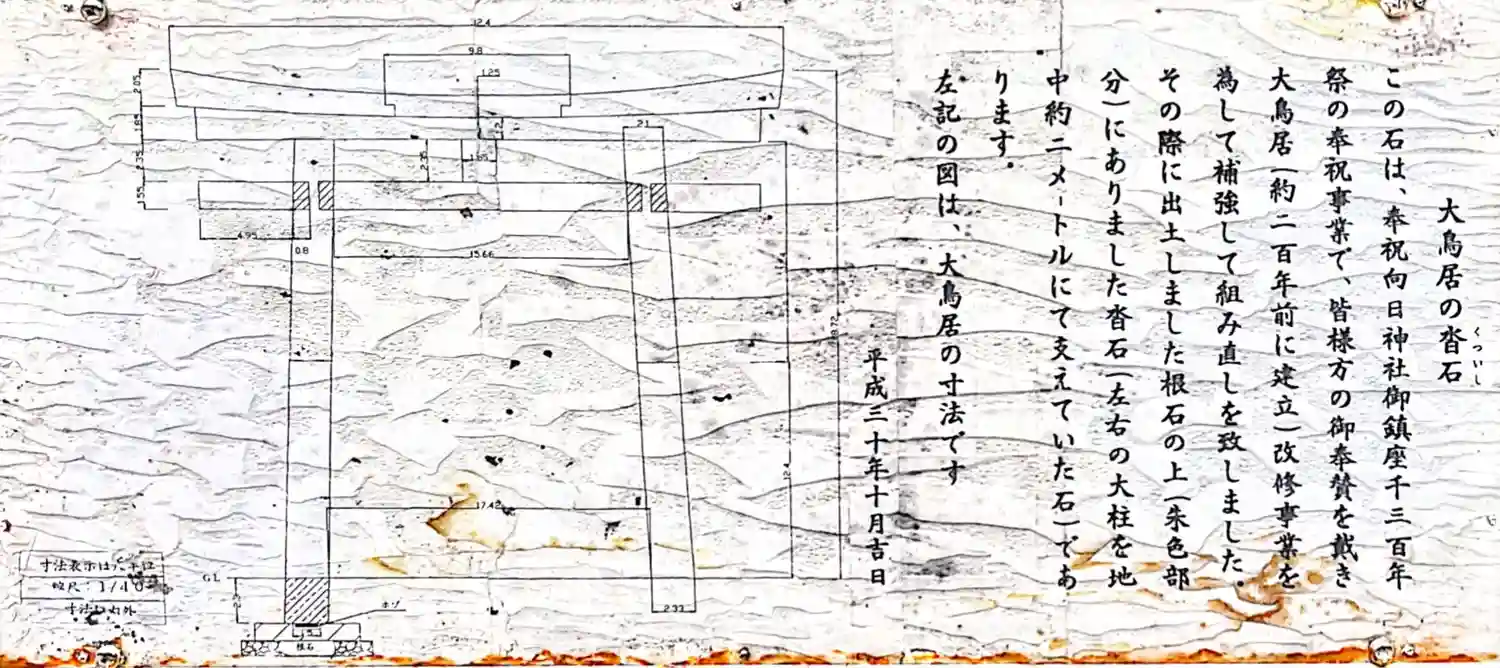 大鳥居の沓石
くついし
この石は、奉祝向日神社御鎮座千三百年
祭の奉祝事業で、皆様方の御奉賛を戴き
大鳥居(約二百年前に建立)改修事業を
為して補強して組み直しを致しました。
その際に出土しました根石の上(朱色部
分)にありました沓石(左右の大柱を地
中約二メートルにて支えていた石)であ
ります。
左記の図は、大鳥居の寸法です
平成三十年十月吉日
12.4
9.8
1.25
2.05
1.85
2.35
1.55
2.35
1.65
2.1
4.95
0.8
15.66
18.72
2.4
17.42
GL
2.33
ホゾ
根石
寸法表示は
縮尺:1/40
寸法